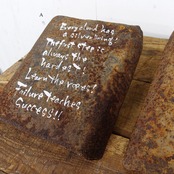 Every cloud has
a silver lining!
The first step is
always the
hardest!
Failure teaches
Success!!